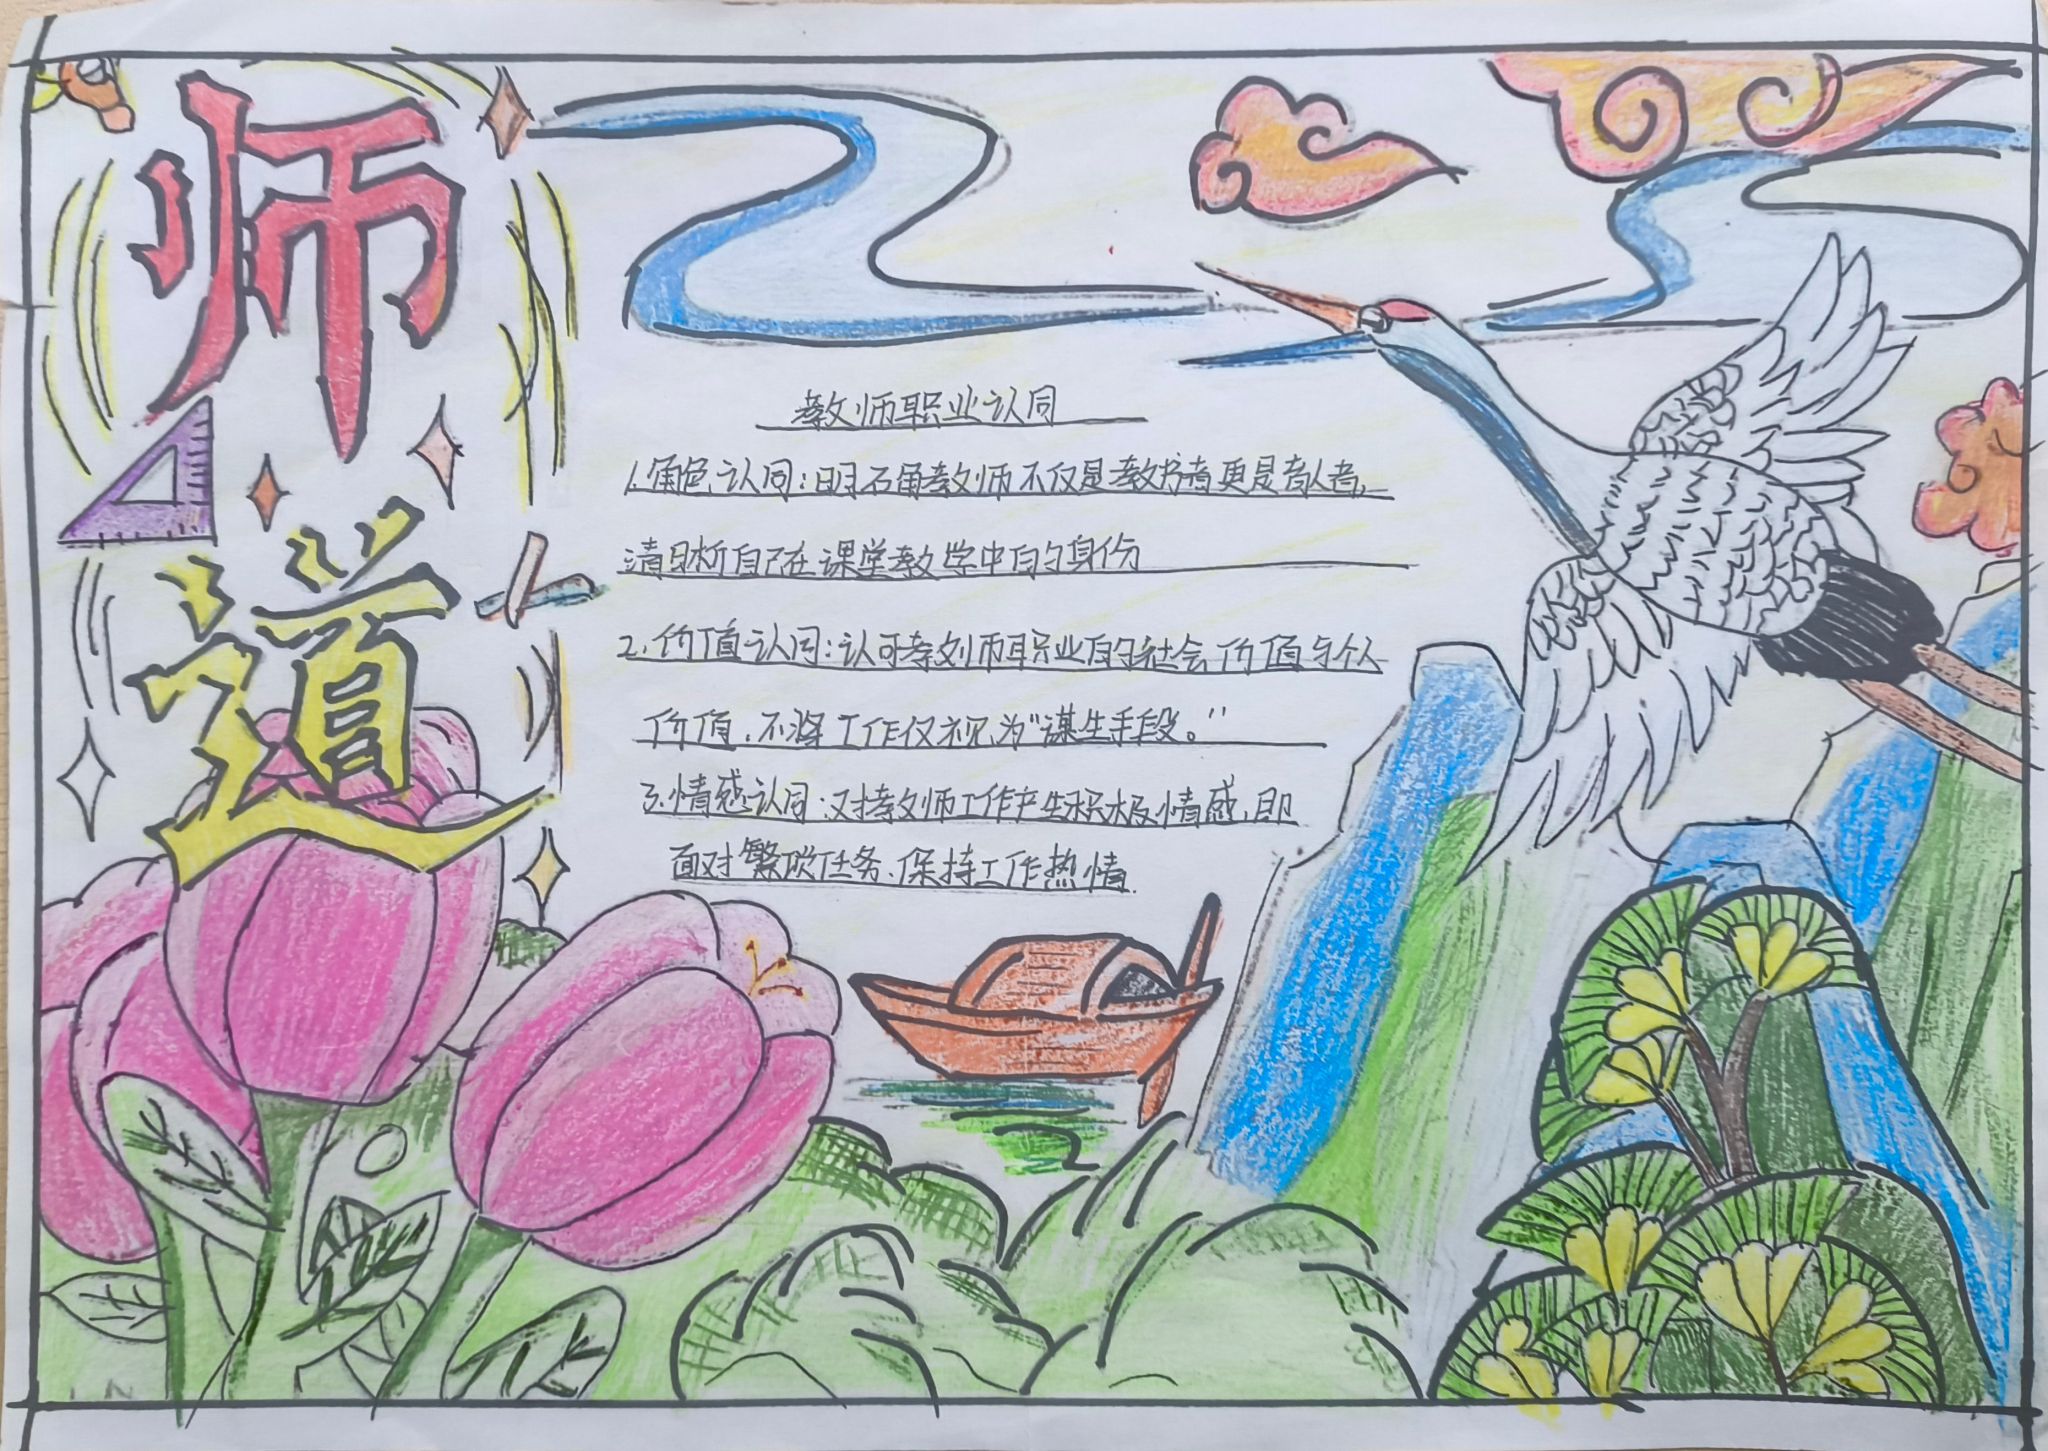 师道
教师职业认同
1.角色认同:明确教师不仅是教书者更是育人者,
清晰自己在课堂教学中的身份
2.价值认同:认可教师职业的社会价值与个人
价值,不将工作仅视为“谋生手段。”
3.情感认同:对教师工作产生积极情感,即
面对繁琐任务、保持工作热情.